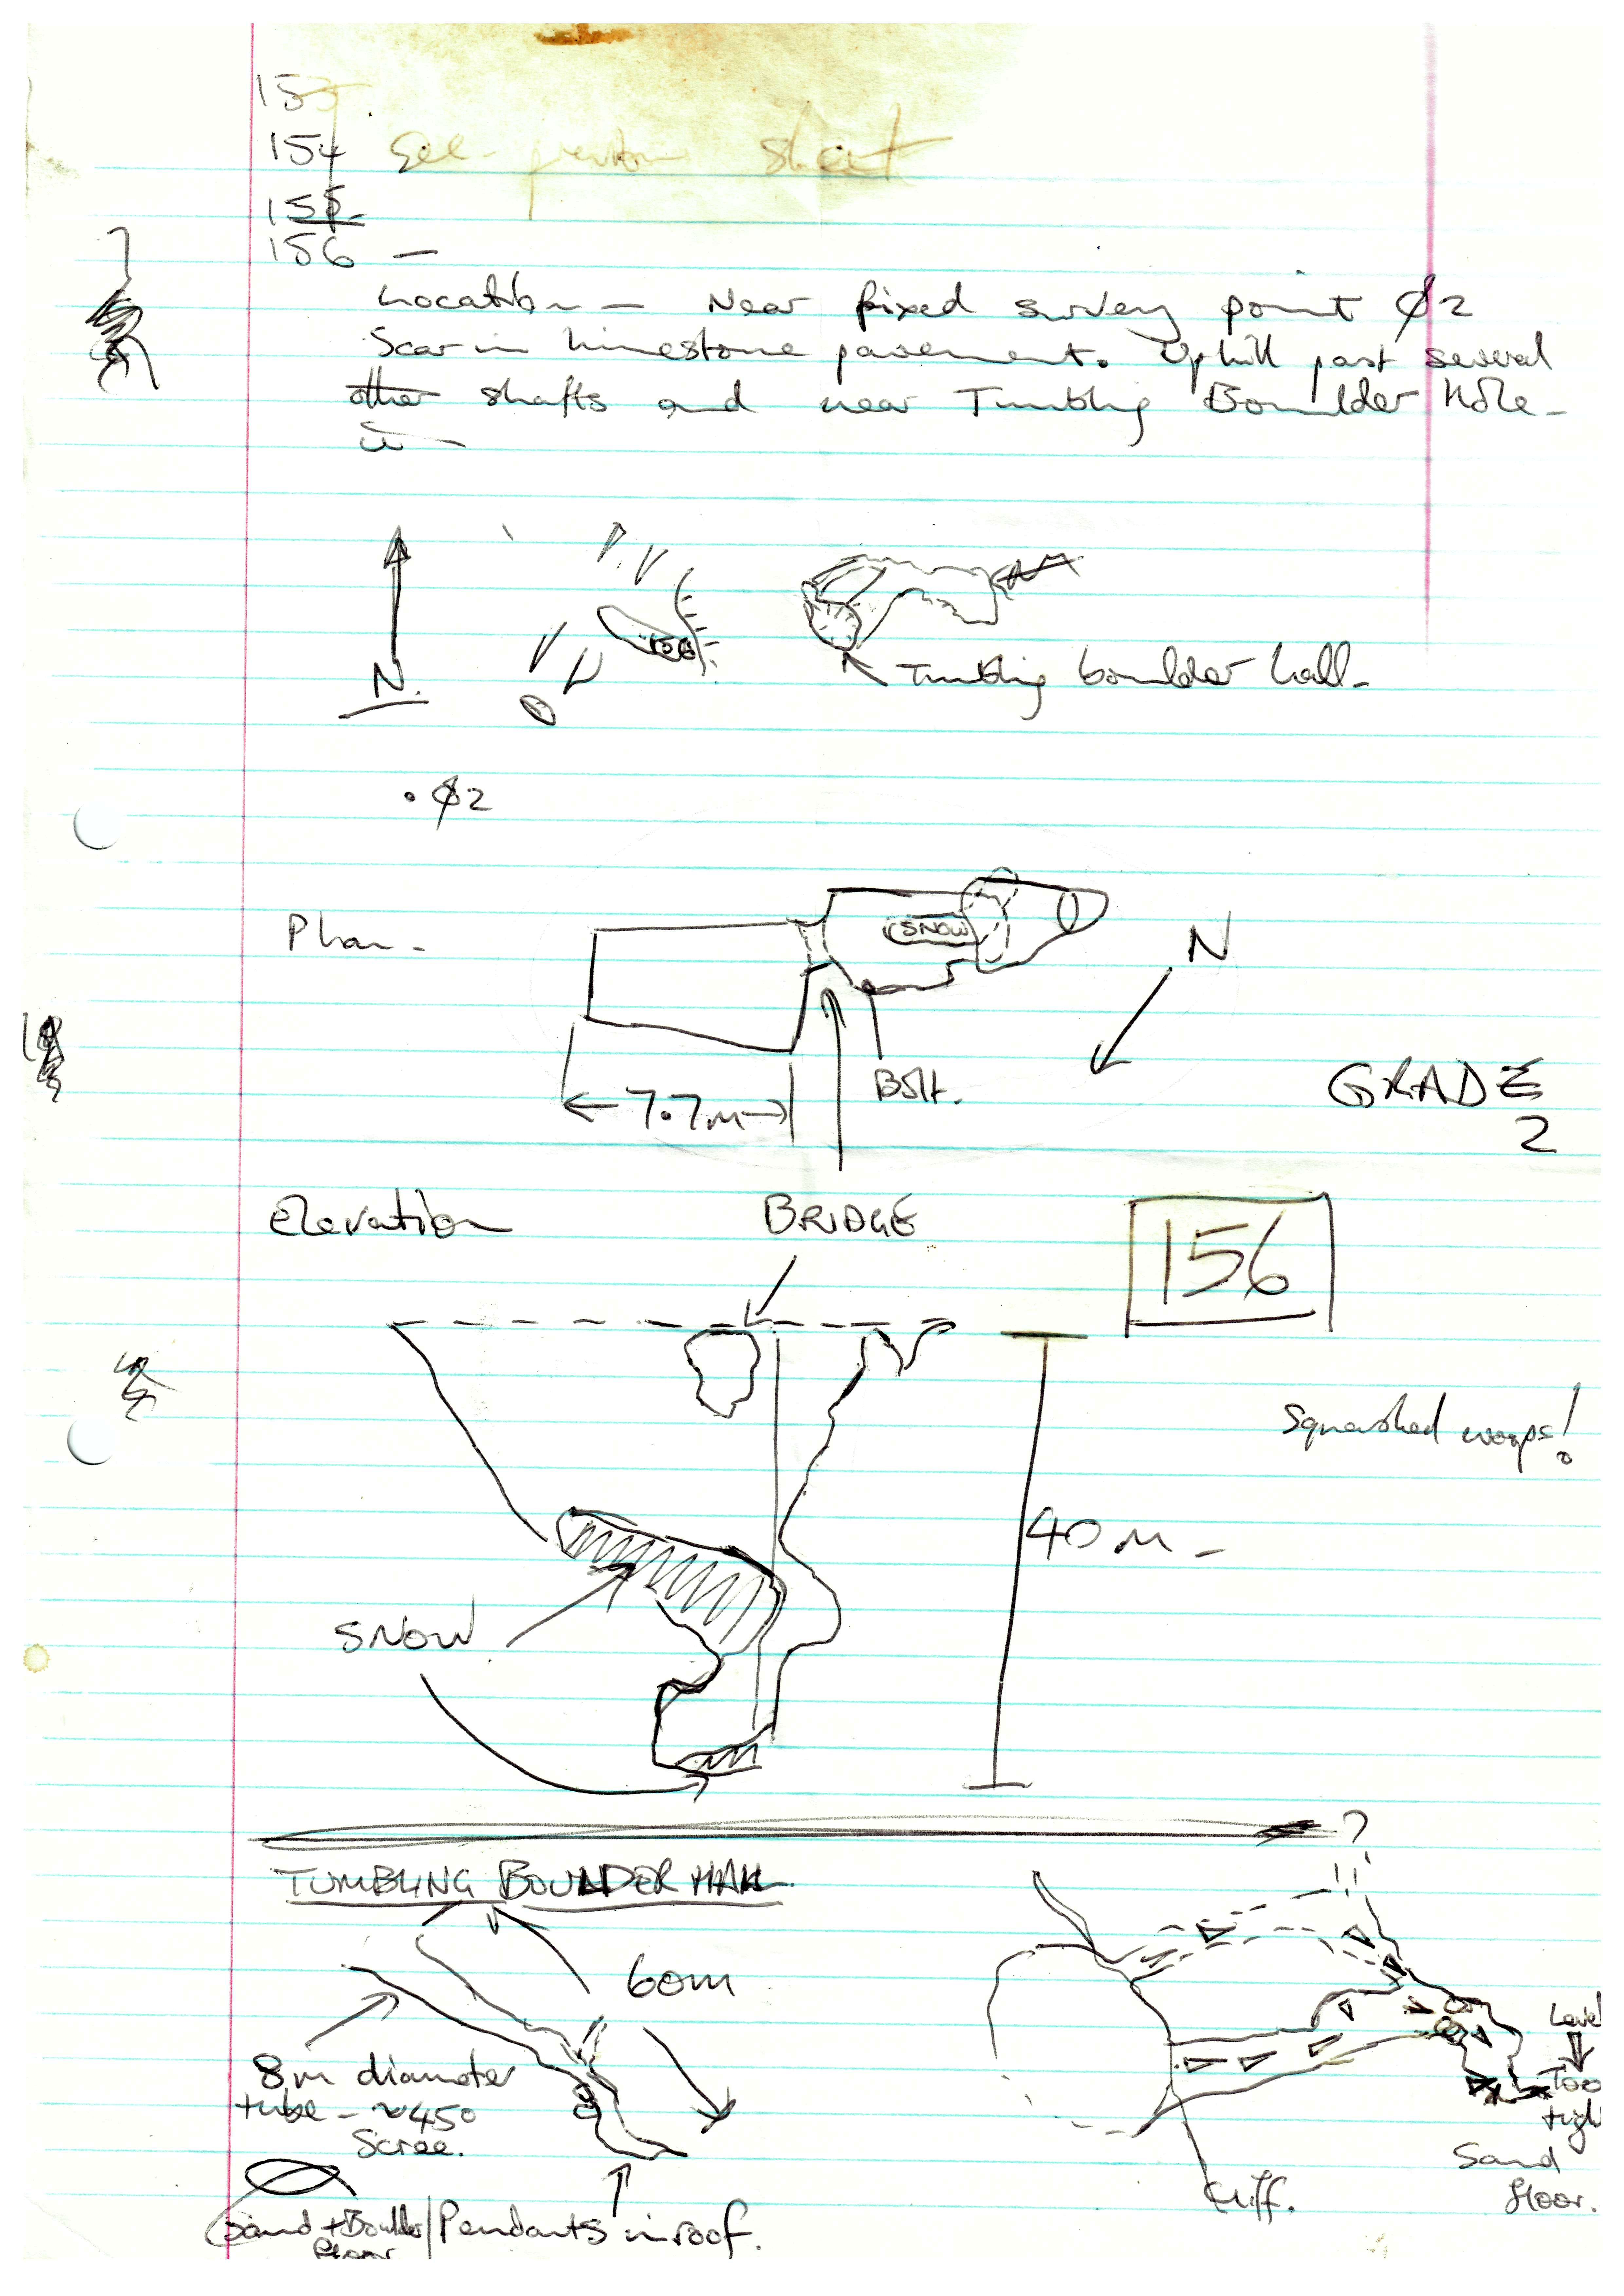 15
154 See previous sheet
155
156 —
Location — Near fixed survey point ∅2
Scar in limestone pavement. Uphill past several
other shafts and near Tumbling Boulder Hole -
N.
156
Tumbling boulder hall -
• ∅2
Plan -
SNOW
N
Bolt.
← 7.7m →
GRADE
2
Elevation
BRIDGE
156
Squashed wasps!
40 m -
SNOW
?
TUMBLING BOULDER HALL
60m
8m diameter
tube - ~45°
Scree.
Sand + Boulder
floor
Pendants in roof.
Cliff.
Level
Too
tigh
Sand
floor.